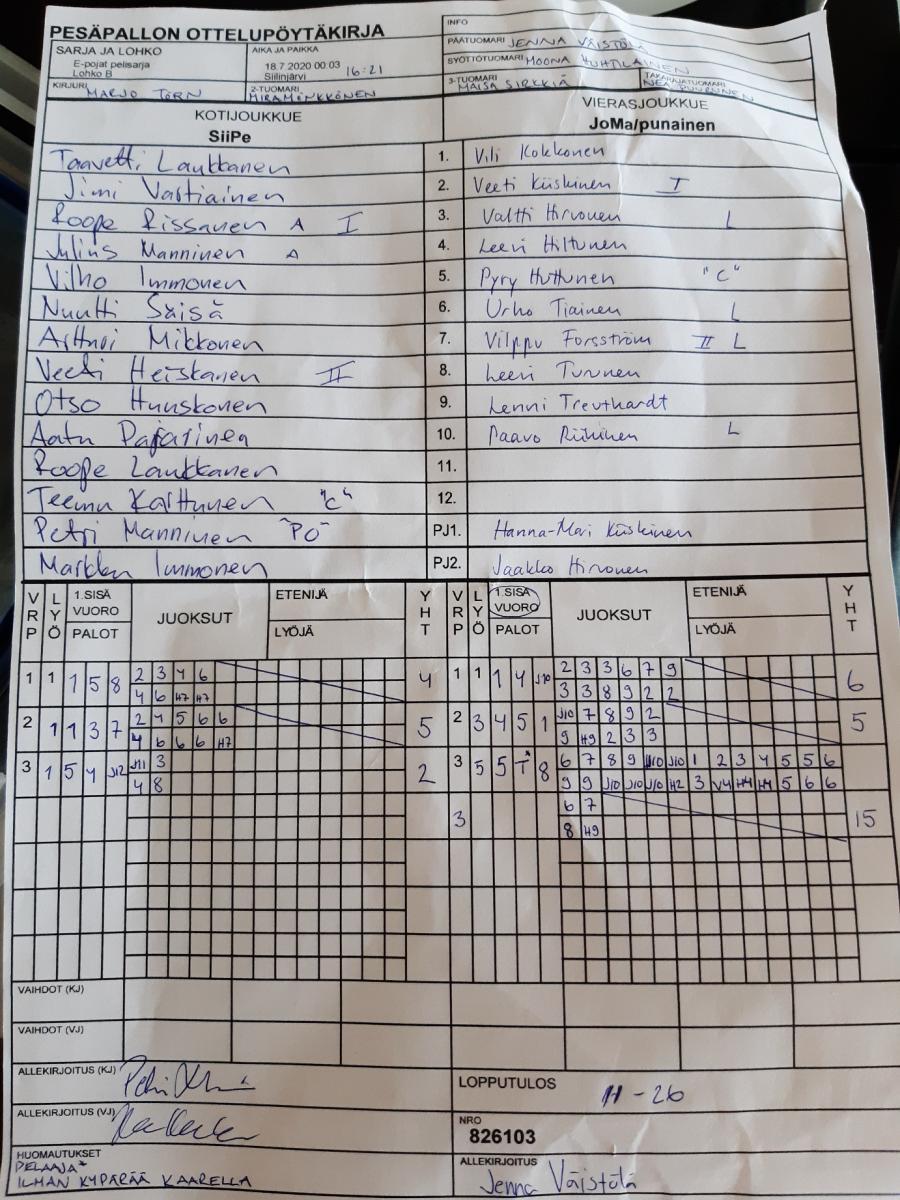 PESÄPALLON OTTELUPÖYTÄKIRJA
INFO
SARJA JA LOHKO
E-pojat pelisarja
Lohko B
AIKA JA PAIKKA
18.7 2020 00:03 16:21
Siilinjärvi
PÄÄTUOMARI JENNA VÄISTÖLÄ
SYÖTTÖTUOMARI MOONA HUHTILAINEN
KIRJURI MARJO TÖRN
2-TUOMARI MIRA MÖNKKÖNEN
3-TUOMARI MAISA SIRKKIÄ
TAKARAJATUOMARI NEA
KOTIJOUKKUE
SiiPe
VIERASJOUKKUE
JoMa/punainen
Taavetti Laukkanen 1. Vili Kokkonen
Jimi Vastiainen 2. Veeti Kiiskinen I
Roope Rissanen A I 3. Valtti Hirvonen L
Julius Manninen A 4. Leevi Hiltunen
Vilho Immonen 5. Pyry Huttunen "C"
Nuutti Säisä 6. Urho Tiainen L
Artturi Mikkonen 7. Vilppu Forsström II L
Veeti Heiskanen II 8. Leevi Turunen
Otso Huuskonen 9. Lenni Treuthardt
Aatu Pajarinen 10. Paavo Riikinen L
Roope Laukkanen 11.
Teemu Karttunen "C" 12.
Petri Manninen "PO" PJ1. Hanna-Mari Kiiskinen
Markku Immonen PJ2. Jaakko Hirvonen
VRP LYÖ 1.SISÄ VUORO PALOT JUOKSUT ETENIJÄ LYÖJÄ YHT VRP LYÖ 1.SISÄ VUORO PALOT JUOKSUT ETENIJÄ LYÖJÄ YHT
1 1 1 5 8 2 3 4 6 4 1 1 1 4 J10 2 3 3 6 7 9 6
4 6 H7 H7 3 3 8 9 2 2
2 1 1 3 7 2 4 5 6 6 5 2 3 4 5 1 J10 7 8 9 2 5
4 6 6 6 H7 9 H9 2 3 3
3 1 5 4 J12 J11 3 2 3 5 5 T* 8 6 7 8 9 J10 J10 1 2 3 4 5 5 6
4 8 9 9 J10 J10 J10 H2 3 V4 H4 H4 5 6 6
3 6 7 15
8 H9
VAIHDOT (KJ)
VAIHDOT (VJ)
ALLEKIRJOITUS (KJ)
ALLEKIRJOITUS (VJ)
LOPPUTULOS 11 - 26
NRO
826103
HUOMAUTUKSET
PELAAJA*
ILMAN KYPÄRÄÄ KAARELLA
ALLEKIRJOITUS
Jenna Väistölä